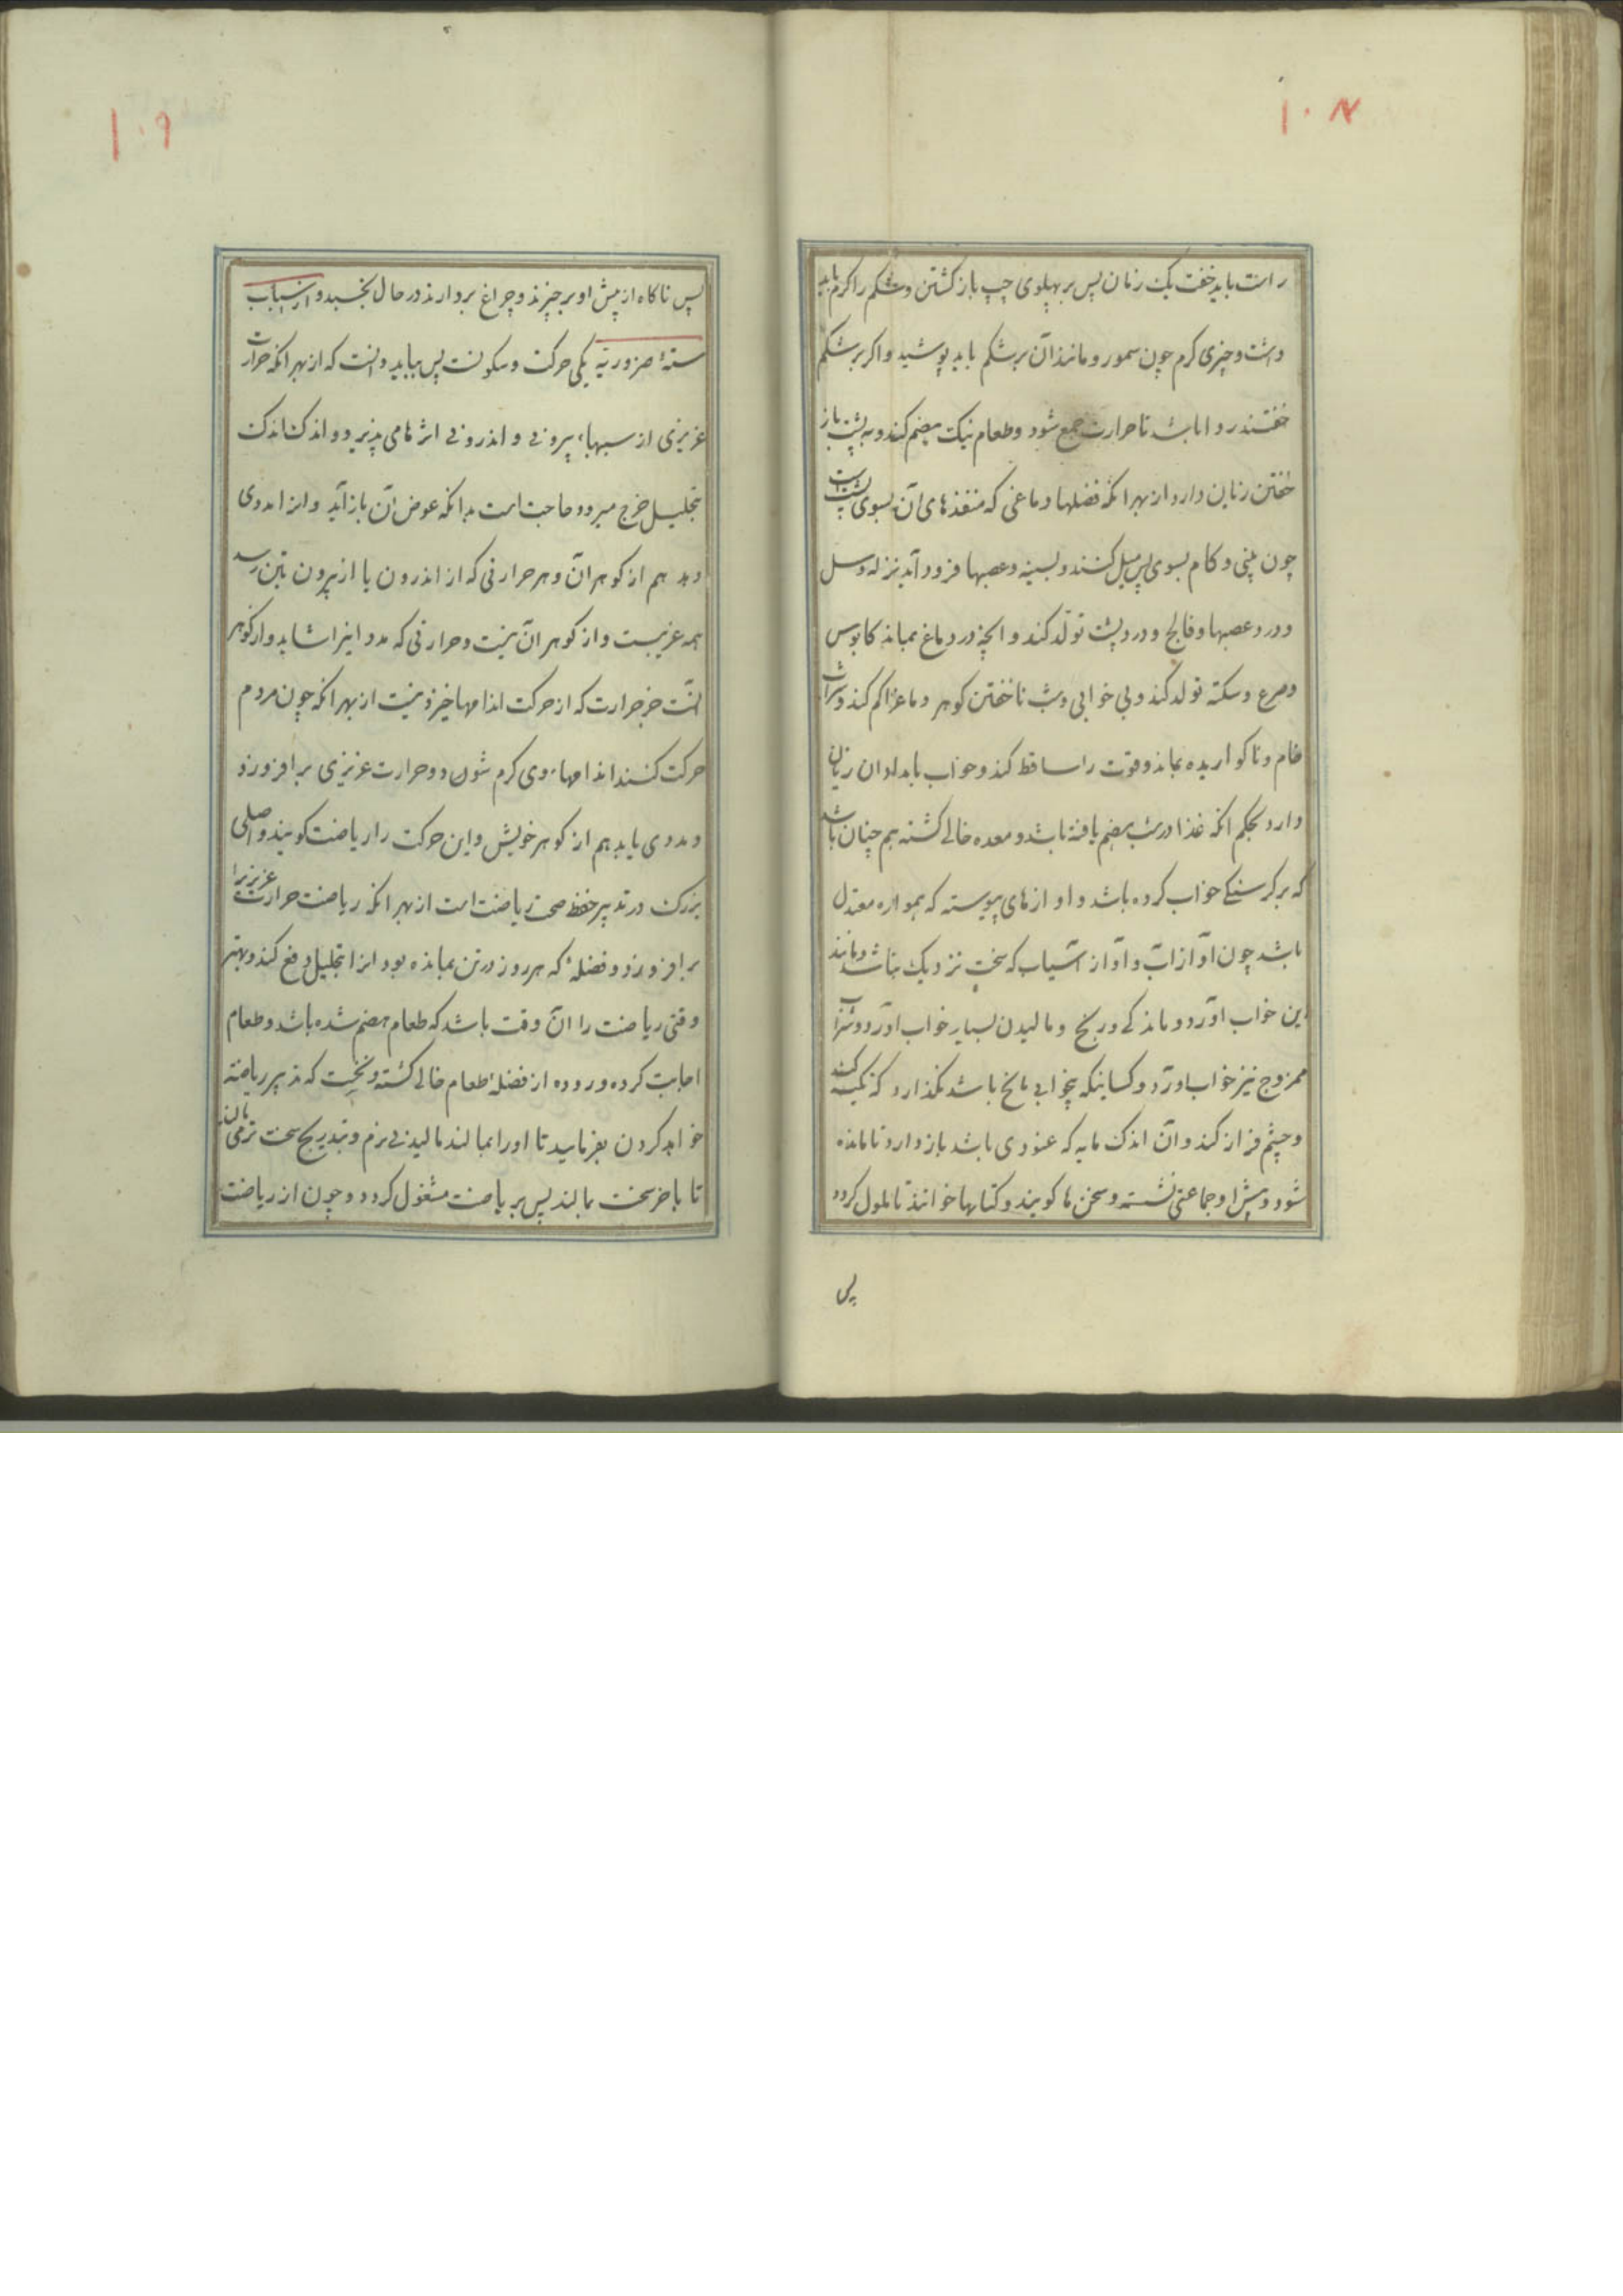 ۱۰۸
راست باید خفت یک زمان پس بر پهلوی چپ باز کشتن وشکم را کرم باید
داشت وچیزی کرم چون سمور و مانند آن بر شکم باید پوشید واکر بر شکم
خفتند روا باشد تا حرارت جمع شود وطعام نیک هضم کند و به پشت باز
خفتن زیان دارد از بهر انکه فضلها دماغی که منفذهای آن بسوی پشت است
چون بینی و کام بسوی پس میل کنند و بسینه وعصبها فرود آید نزله وسل
ودرد عصبها وفالج ودرد پشت تولّد کند و انچه در دماغ بماند کابوس
وصرع وسکته تولد کند وبی خوابی وشب ناخفتن کوهر دماغ را کم کند
خام وناکواریده بماند وقوت را ساقط کند وخواب بامدادان زیان
دارد بحکم انکه غذا در شب هضم یافته باشد ومعده خالی کشته هم چنان باشد
که بر کرسنکی خواب کرده باشد واوازهای پیوسته که همواره معتدل
باشد چون آواز آب وآواز آسیاب که سخت نزدیک نباشد ومانند
این خواب آورد وماندکی ورنج ومالیدن بسیار خواب آورد وشراب
ممزوج نیز خواب آورد وکسانیکه بیخوابی با رنج باشد نکذارد که تکیه کند
وچشم فراز کند وآن اندک مایه که غنودی باشد باز دارد تا مانده
شود وپیش او جماعتی نشسته وسخن ها کویند وکتابها خوانند تا ملول کردد
پس
۱۰۹
پس ناکاه از پیش او برخیزند وچراغ بردارند در حال بخسبد و از اسباب
ستهٔ ضروریّه یکی حرکت وسکونست پس بباید دانست که از بهر انکه حرارت
غریزی از سببهاء بیرونی و اندرونی اثرها می پذیرد و اندک اندک
بتحلیل خرج میرود حاجت است بدانکه عوض آن باز آید وانرا مددی
دهد هم از کوهر آن وهر حرارتی که از اندرون یا از بیرون بتن رسد
همه غریبست واز کوهر آن نیست وحرارتی که مدد اینرا شاید واز کوهر
انست جز حرارت که از حرکت اندامها خیزد نیست از بهر انکه چون مردم
حرکت کنند اندامهاء وی کرم شود وحرارت غریزی برافروزد
ومددی یابد هم از کوهر خویش واین حرکت را ریاضت کویند واصلی
بزرک در تدبیر حفظ صحت ریاضت است از بهر انکه ریاضت حرارت غریزیرا
برافروزد وفضلهٔ که هر روز در تن بمانده بود انرا بتحلیل دفع کند وبهتر
وقتی ریاضت را آن وقت باشد که طعام هضم شده باشد وطعام
اجابت کرده وروده از فضلهٔ طعام خالی کشته ونخست که تدبیر ریاضت
خواهد کردن بفرماید تا اورا بمالند مالیدنی نرم وبتدریج سخت تر می مالند
تا باخر سخت بمالند پس بر ریاضت مشغول کردد وچون از ریاضت